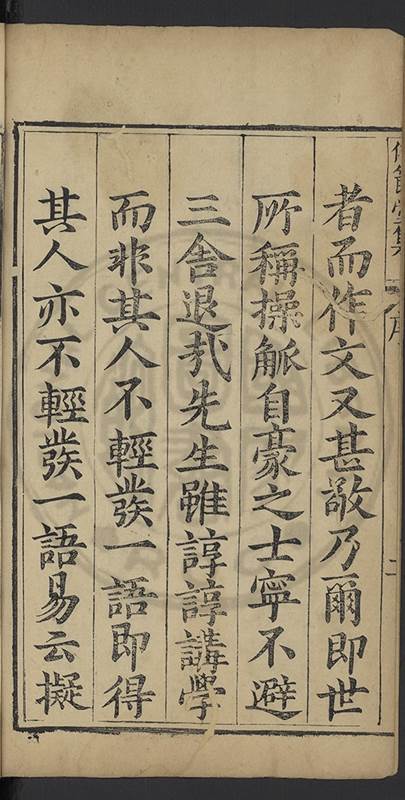 者而作文又甚敬乃爾即世
所稱操觚自豪之士寧不避
三舍退哉先生雖諄諄講學
而非其人不輕發一語即得
其人亦不輕發一語易云擬